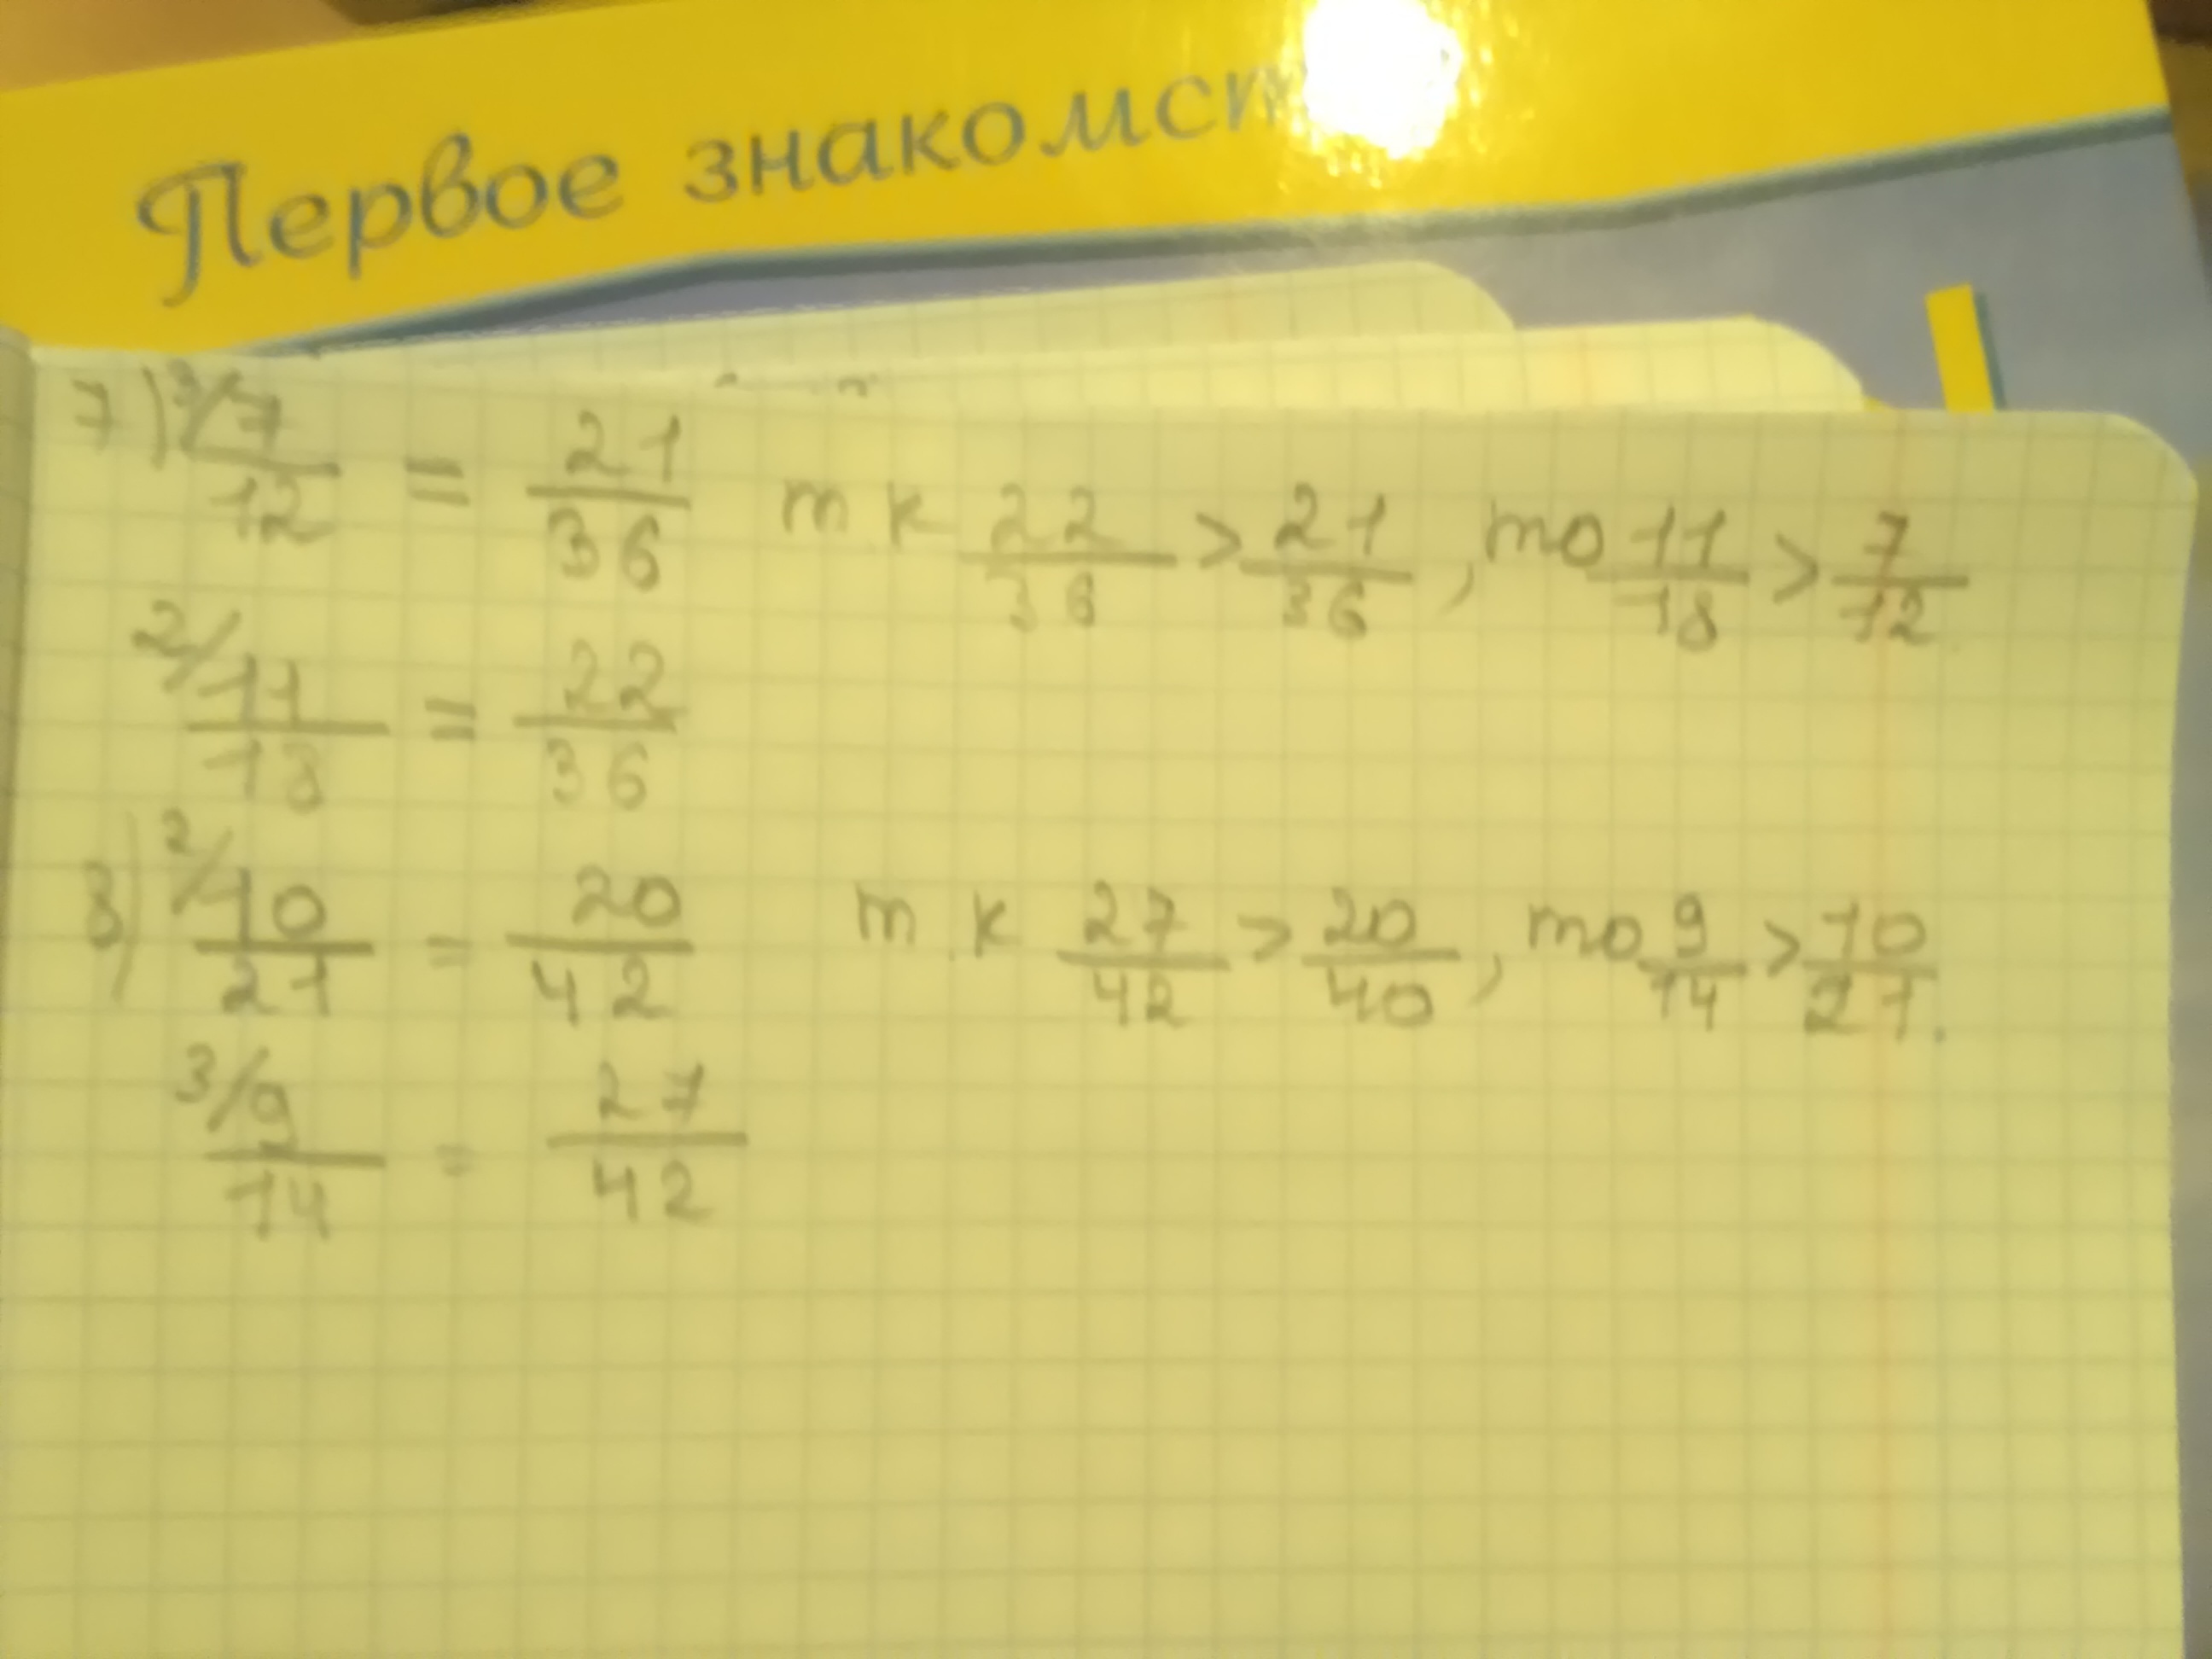 Первое знакомст
7) 3/7/12 = 21/36 т.к 22/36 > 21/36, то 11/18 > 7/12
2/11/18 = 22/36
8) 2/10/21 = 20/42 т.к 27/42 > 20/40, то 9/14 > 10/21.
3/9/14 = 27/42